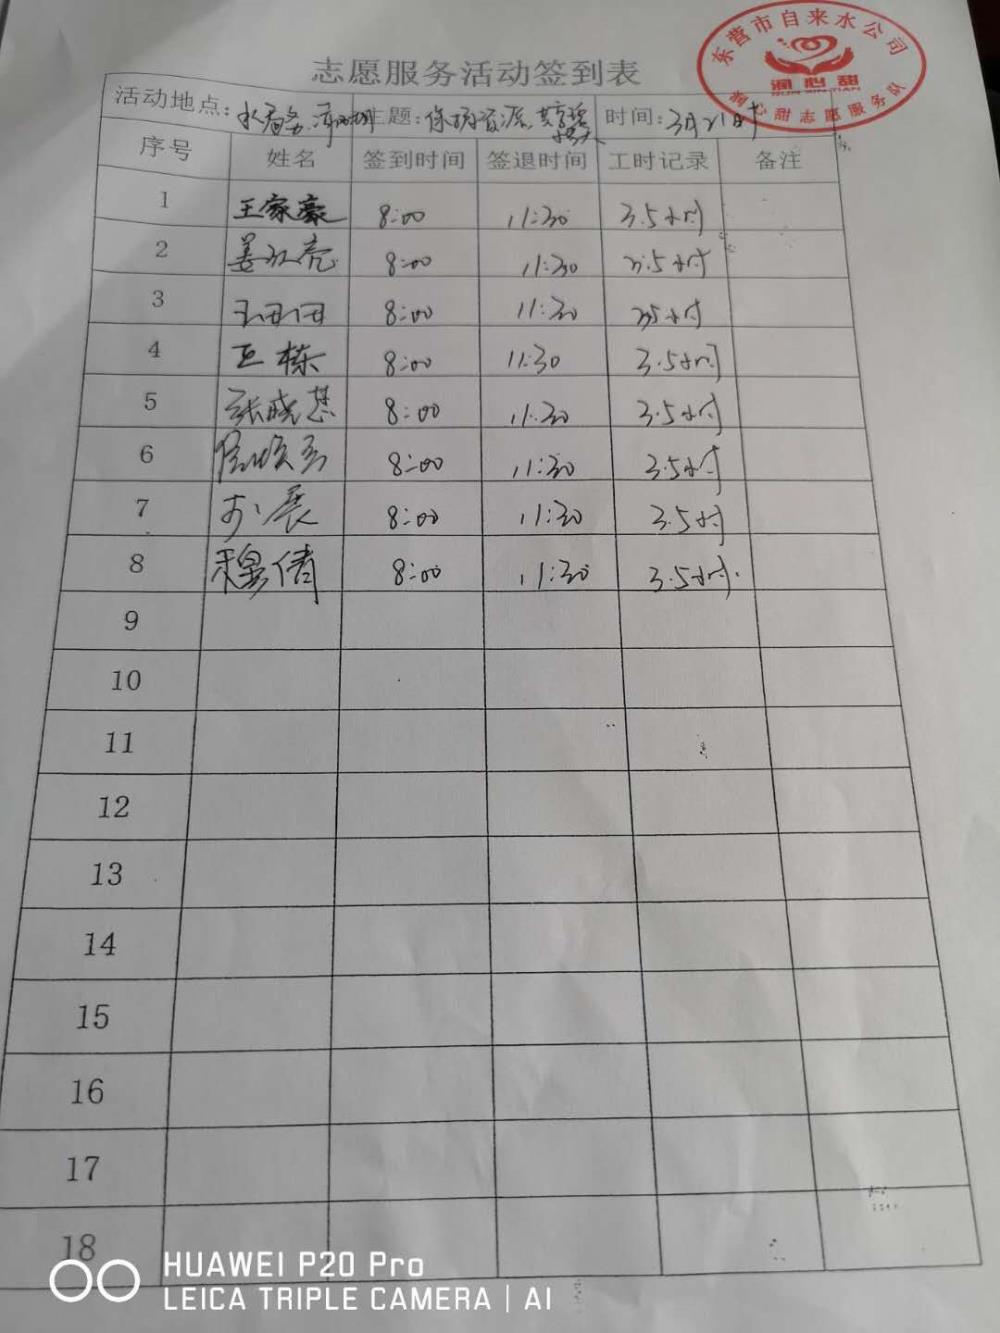 东营市自来水公司
润心甜
RUN XIN TIAN
润心甜志愿服务队
志愿服务活动签到表
活动地点: 主题: 保护资源 时间: 3月21日
序号 姓名 签到时间 签退时间 工时记录 备注
1 王家豪 8:00 11:30 3.5小时
2 姜 亮 8:00 11:30 3.5小时
3 8:00 11:30 3.5小时
4 王栋 8:00 11:30 3.5小时
5 张晓 8:00 11:30 3.5小时
6 8:00 11:30 3.5小时
7 8:00 11:30 3.5小时
8 穆倩 8:00 11:30 3.5小时.
9
10
11
12
13
14
15
16
17
18
HUAWEI P20 Pro
LEICA TRIPLE CAMERA | AI